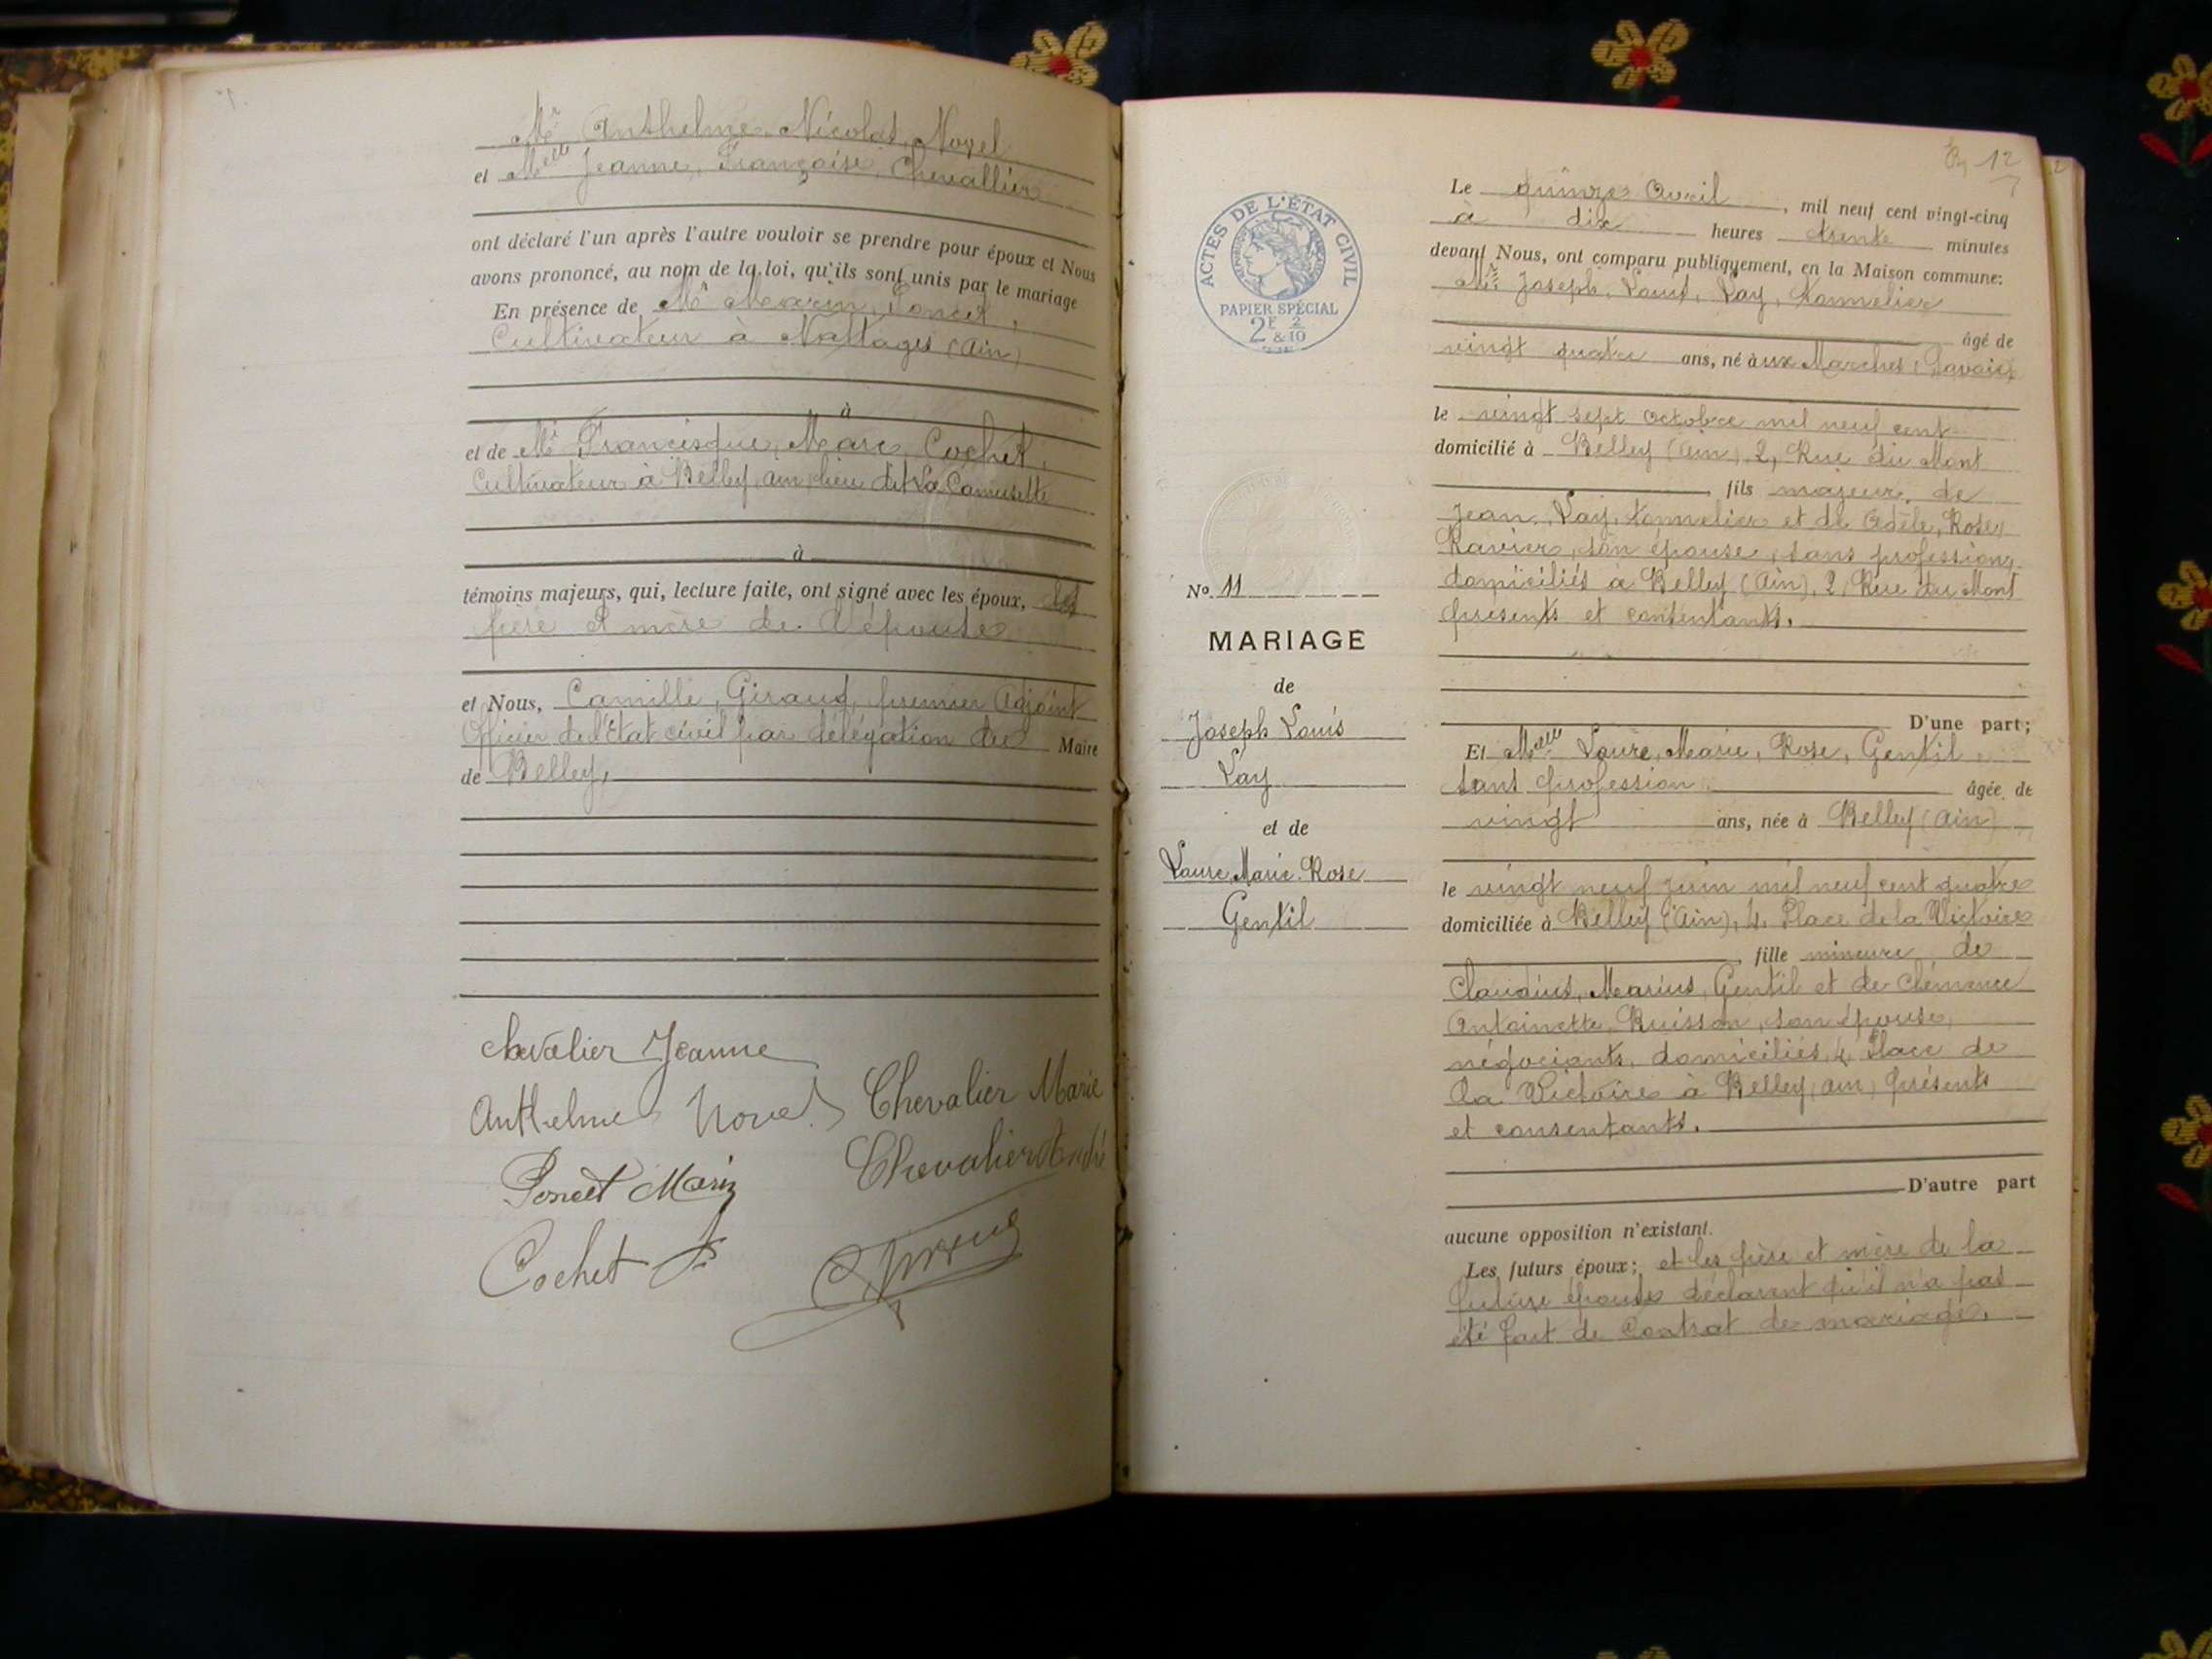 Mr Anthelme, Nicolas, Novel
et Melle Jeanne, Françoise, Chevallier
ont déclaré l'un après l'autre vouloir se prendre pour époux et Nous
avons prononcé, au nom de la loi, qu'ils sont unis par le mariage
En présence de Mr Marin, Poncet,
Cultivateur à Nattages (Ain)
à
et de Mr Francisque, Marc, Cochet,
Cultivateur à Belley, Ain, lieu dit La Camusette
à
témoins majeurs, qui, lecture faite, ont signé avec les époux, les
père et mère de l'épouse
et Nous, Camille, Giraud, premier Adjoint
Officier de l'Etat civil par délégation du Maire
de Belley,
Chevalier Jeanne
Anthelme Novel
Chevalier Marie
Poncet Marin
Chevalier André
Cochet F
12
Le quinze Avril, mil neuf cent vingt-cinq
à dix heures trente minutes
devant Nous, ont comparu publiquement, en la Maison commune:
Mr Joseph, Louis, Lay, tonnelier
âgé de
vingt quatre ans, né àux Marches (Savoie)
le vingt sept octobre mil neuf cent
domicilié à Belley (Ain), 2, Rue du Mont
fils majeur de
Jean, Lay, tonnelier et de Adèle, Rose,
Ravier, son épouse, sans profession,
domiciliés à Belley (Ain), 2, Rue du Mont
présents et consentants.
D'une part;
Et Melle Laure, Marie, Rose, Gentil,
sans profession âgée de
vingt ans, née à Belley (Ain)
le vingt neuf juin mil neuf cent quatre
domiciliée à Belley (Ain), 4, Place de la Victoire
fille mineure de
Claudius, Marius, Gentil et de Clémence
Antoinette, Buisson, son épouse,
négociants, domiciliés, 4, Place de
la Victoire à Belley, Ain, présents
et consentants.
D'autre part
aucune opposition n'existant.
Les futurs époux; et les père et mère de la
future épouse déclarent qu'il n'a pas
été fait de Contrat de mariage.
ACTES DE L'ÉTAT CIVIL
PAPIER SPÉCIAL
2F & 2/10
No 11
MARIAGE
de
Joseph Louis
Lay
et de
Laure, Marie-Rose
Gentil